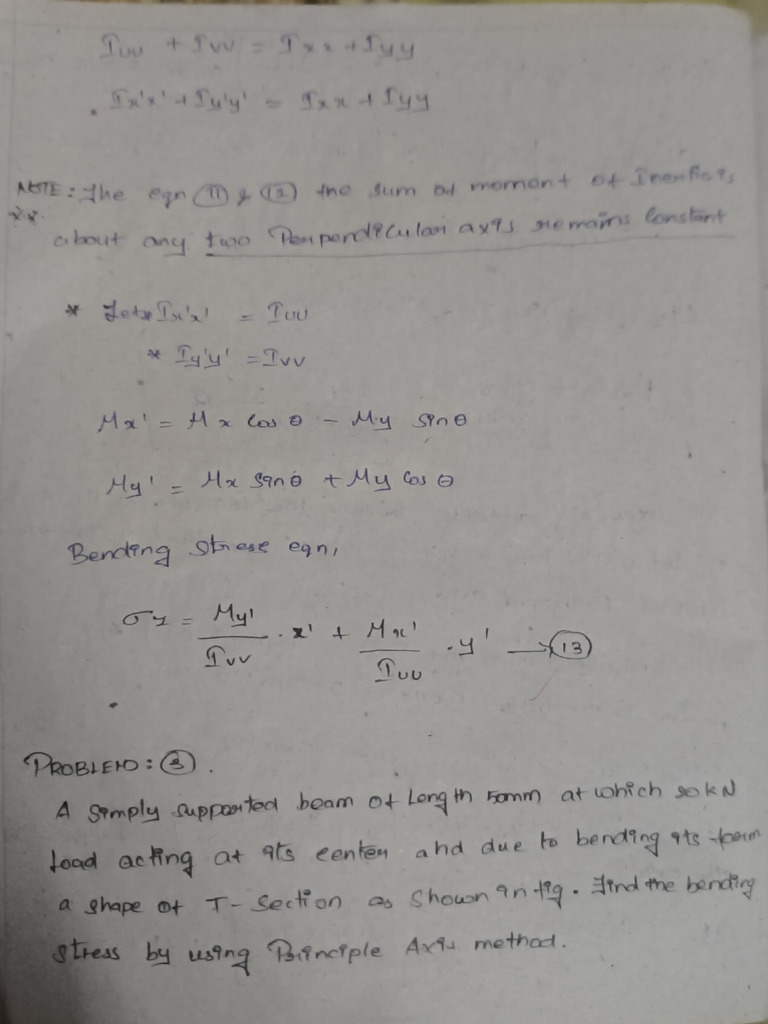 Iuu + Ivv = Ixx + Iyy
Ix'x' + Iy'y' = Ixx + Iyy
NOTE: The eqn (11) & (12) the sum of moment of Inertia is
about any two Perpendicular axis remains Constant
* Let Ix'x' = Iuu
* Iy'y' = Ivv
Mx' = Mx Cos θ - My Sin θ
My' = Mx Sin θ + My Cos θ
Bending stress eqn,
σz = My'/Ivv . x' + Mx'/Iuu . y' → (13)
PROBLEM: (3).
A Simply supported beam of Length 50mm at which kN
load acting at its center and due to bending its form
a shape of T-Section as Shown in fig. Find the bending
Stress by using Principle Axis method.